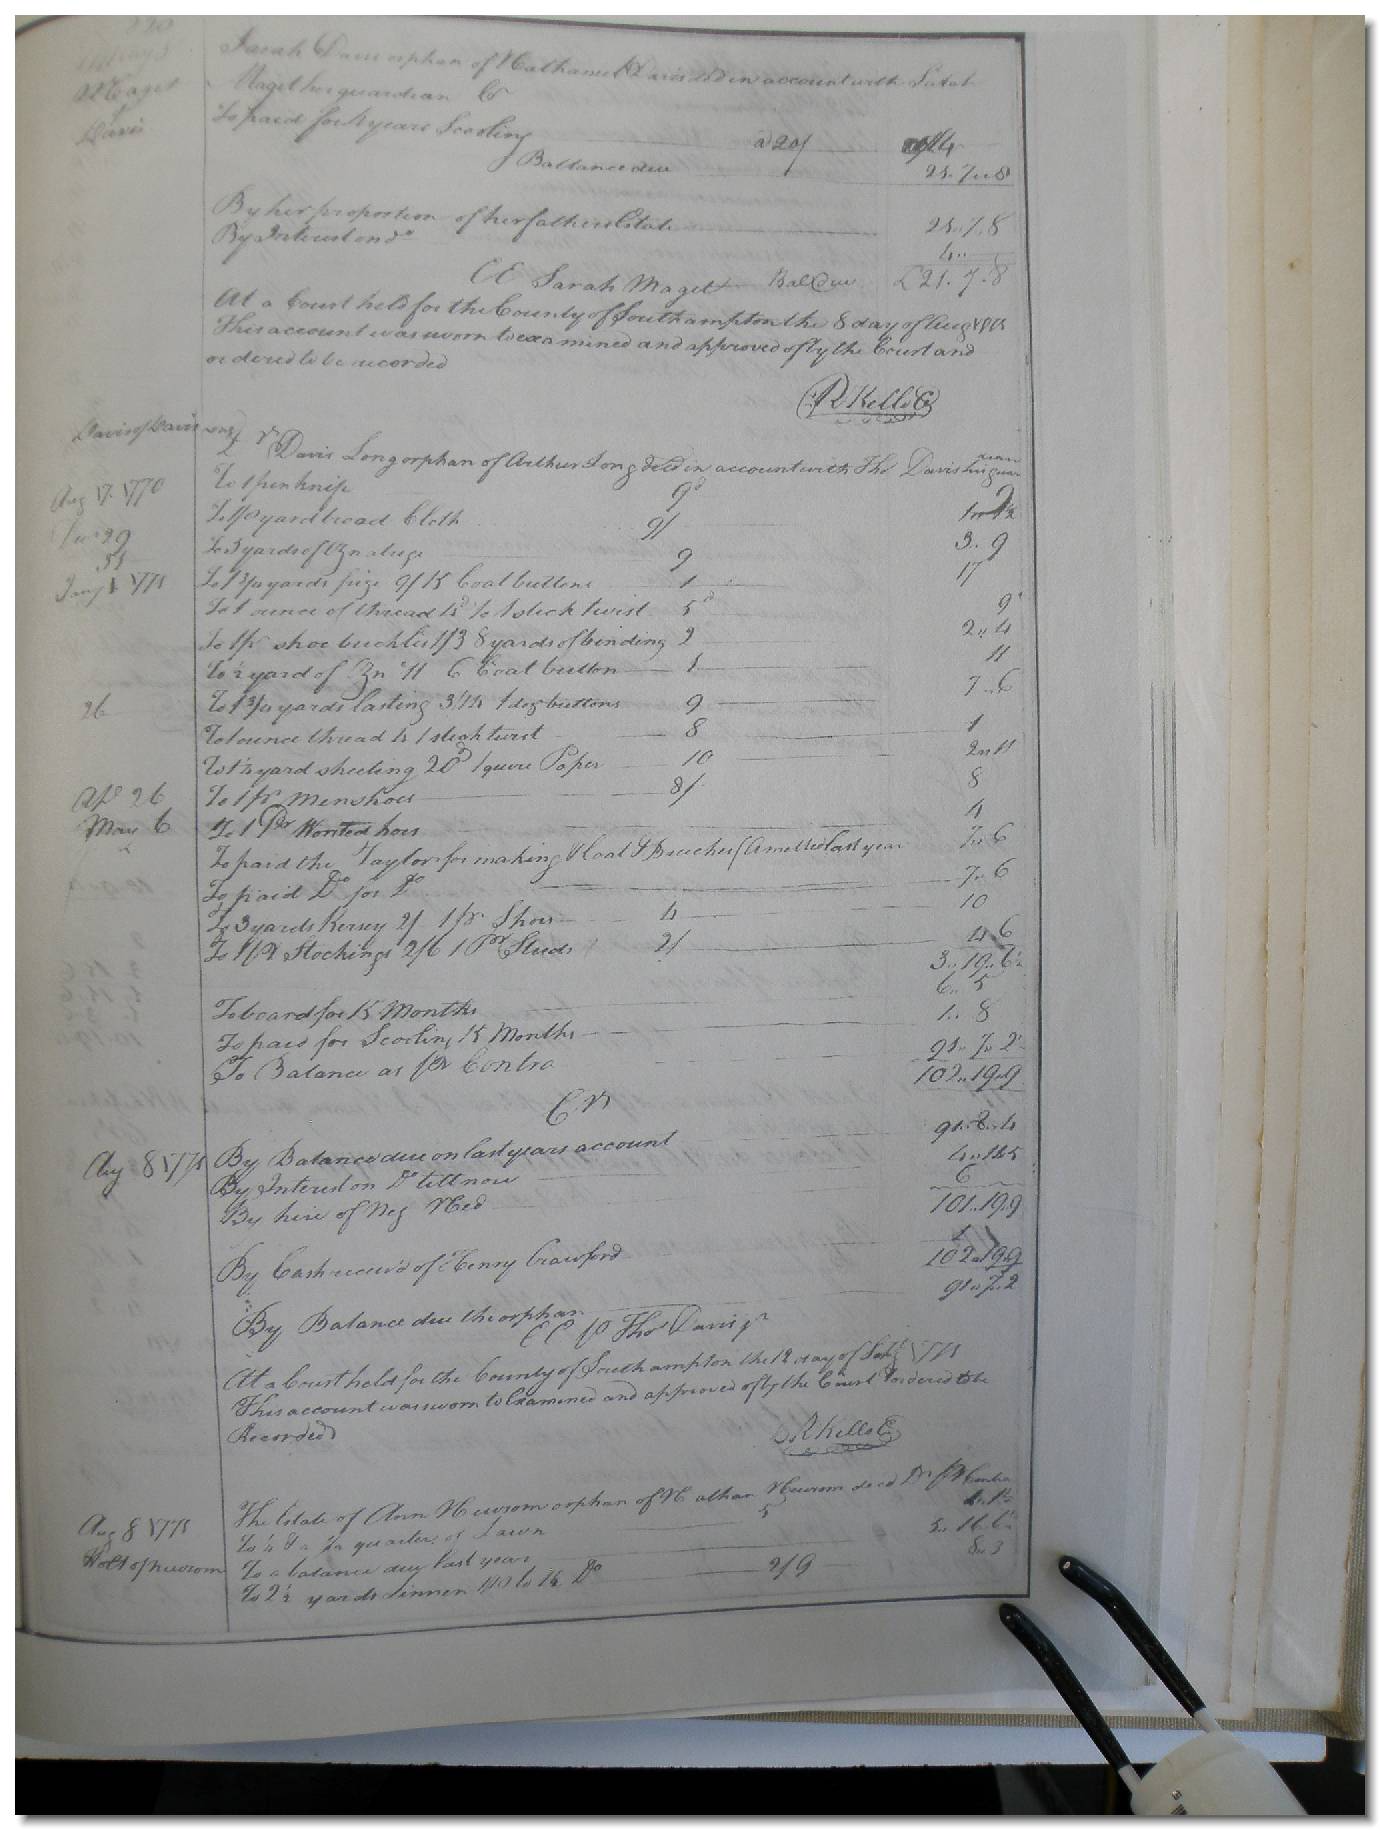 220
Maget
&
Davis
Sarah Davis orphan of Nathaniel Davis decd in account with Sarah
Maget her guardian Dr
To paid for 4 years Scooling a 20/ 4
Ballance due 21.7.8
By her proportion of her fathers Estate 25.7.8
By Interest on do
EE Sarah Maget Bal Due £21.7.8
At a Court held for the County of Southampton the 8 day of Aug 1771
This account was sworn to examined and approved of by the Court and
ordered to be recorded
R Kello C
Davis of Davis
Dr Davis Long orphan of Arthur Long decd in account with Tho Davis his guar
Aug 17. 1770 To 1 pen knife 9d
Dec 29 To yard broad Cloth 9/
31 To 3 yards of
Jany 1 1771 To 1 3/4 yards frize 9/ Coat buttons 1 17
To 1 ounce of thread 4d to 1 stick twist 5d 9
To 1 pr shoe buckles 1/3 8 yards of binding 2 2..4
To ½ yard of 6 Coat button 1 11
26 To 1 3/4 yards lasting 1 doz buttons 9 7..6
To 1 ounce thread 4 1 stick twist 8 1
To yard sheeting 20d 1 quire Paper 10 2..11
Apr 26 To 1 pr mens shoes 8/ 8
May 6 To 1 Pr Worsted hose 4
To paid the Taylor for making Coat & Breeches (omitted last year 7..6
To paid Do for Do 7..6
To 3 yards Kersey 2/ 1 pr Shoes 4 10
To 1 pr Stockings 2/6 1 Pr Studs 2/ 4 6
3..19..6½
To board for 15 Months 6..5
To paid for Scooling 15 Months 1.. 8
To Balance as pr Contra 91..7..2
102..19..9
Cr
Aug 8 1771 By Balance due on last years account 91..8..4
By Interest on Do till now
By hire of Neg Ned 6
101..19..9
By Cash receivd of Henry Crawford 1
102..19..9
By Balance due the orphan 91..7..2
EE pr Thos Davis
At a Court held for the County of Southampton the 12 day of Sept 1771
This account was sworn to Examined and approved of by the Court & ordered to be
Recorded
R Kello C
The Estate of Ann Newsom orphan of Nathan Newsom decd Dr pr Contra
Aug 8 1771 To quarter of Lawn 5
Holt of Newsom To a balance due last year 5..16..6
To 2½ yards Linnen Do 2/9 8..3